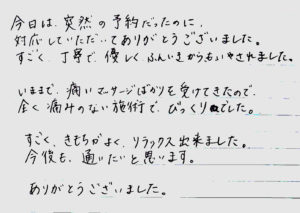 今日は、突然の予約だったのに、
対応していただいてありがとうございました。
すごく、丁寧で、優しく、ふんいきからもいやされました。
いままで、痛いマッサージばかりを受けてきたので、
全く痛みのない施術で、びっくりでした。
すごく、きもちがよく、リラックス出来ました。
今後も、通いたいと思います。
ありがとうございました。